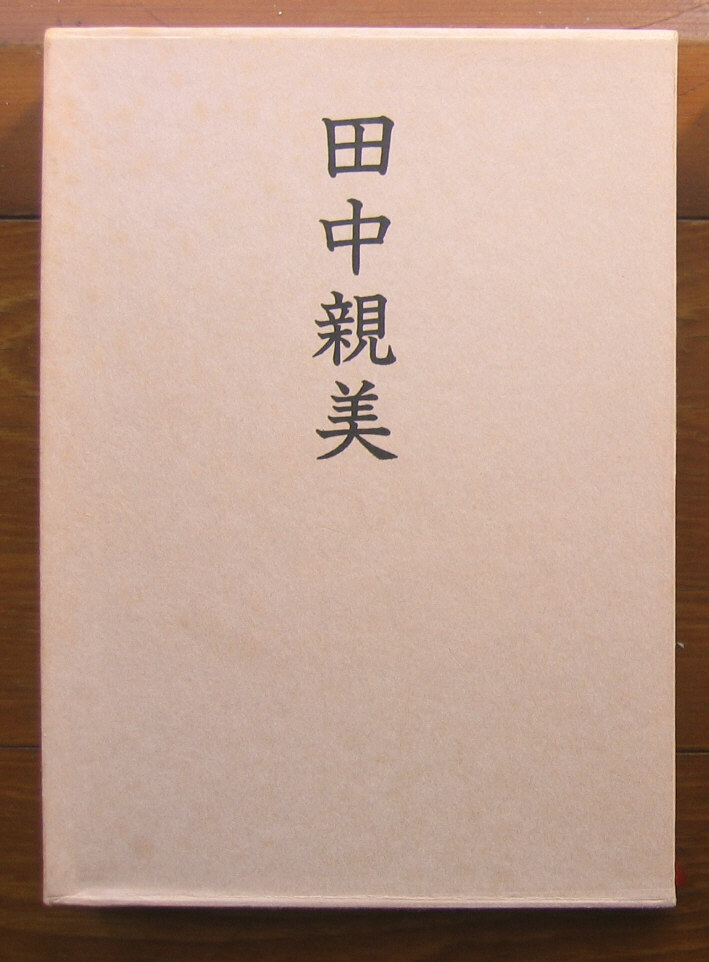 田中親美